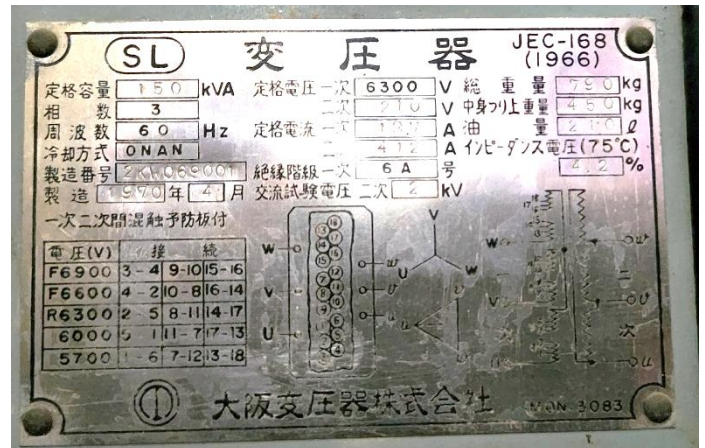 SL 変圧器 JEC-168 (1966)
定格容量 150 kVA 定格電圧一次 6300 V 総重量 790 kg
相数 3 二次 210 V 中身つり上重量 450 kg
周波数 60 Hz 定格電流一次 A 油量 210 ℓ
冷却方式 ONAN 二次 412 A インピーダンス電圧(75℃)
製造番号 絶縁階級一次 6A 号 4.2 %
製造 1970年 4月 交流試験電圧 二次 2 kV
一次二次間混触予防板付
電圧(V) 接続
F6900 3-4 9-10 15-16
F6600 4-2 10-8 16-14
R6300 2-5 8-11 14-17
6000 5-1 11-7 17-13
5700 1-6 7-12 13-18
W V U
w v u
V U W
v u w
W V U
一次 二次
w v u
大阪変圧器株式会社 MON 3083